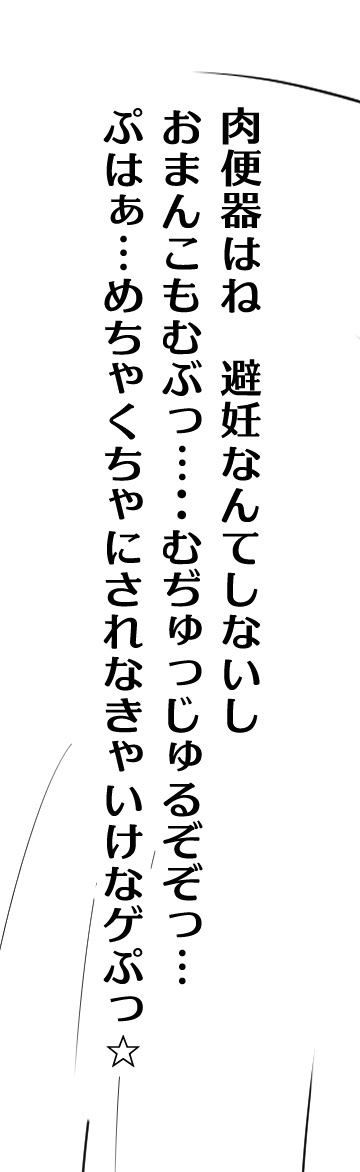 肉便器はね　避妊なんてしないし
おまんこもむぶっ…‥むぢゅっじゅるぞぞっ…
ぷはぁ…めちゃくちゃにされなきゃいけなゲぷっ☆